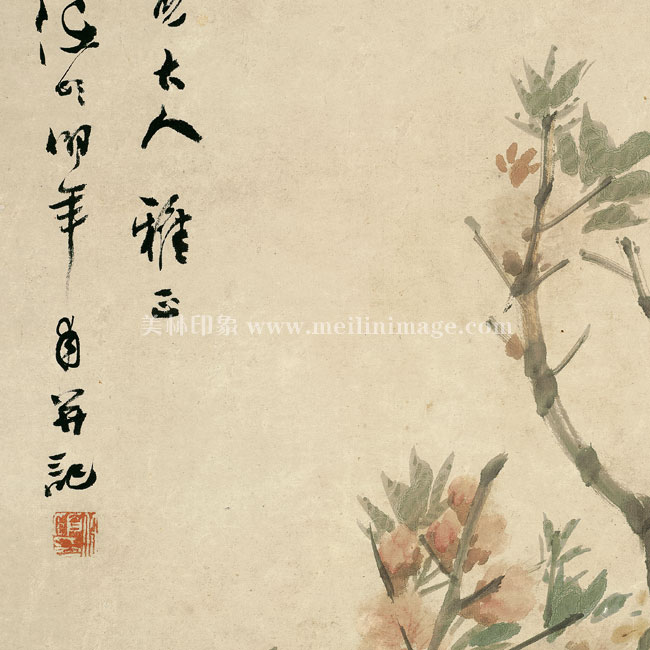 大人雅正
任頤伯年甫并記
美林印象 www.meilinimage.com